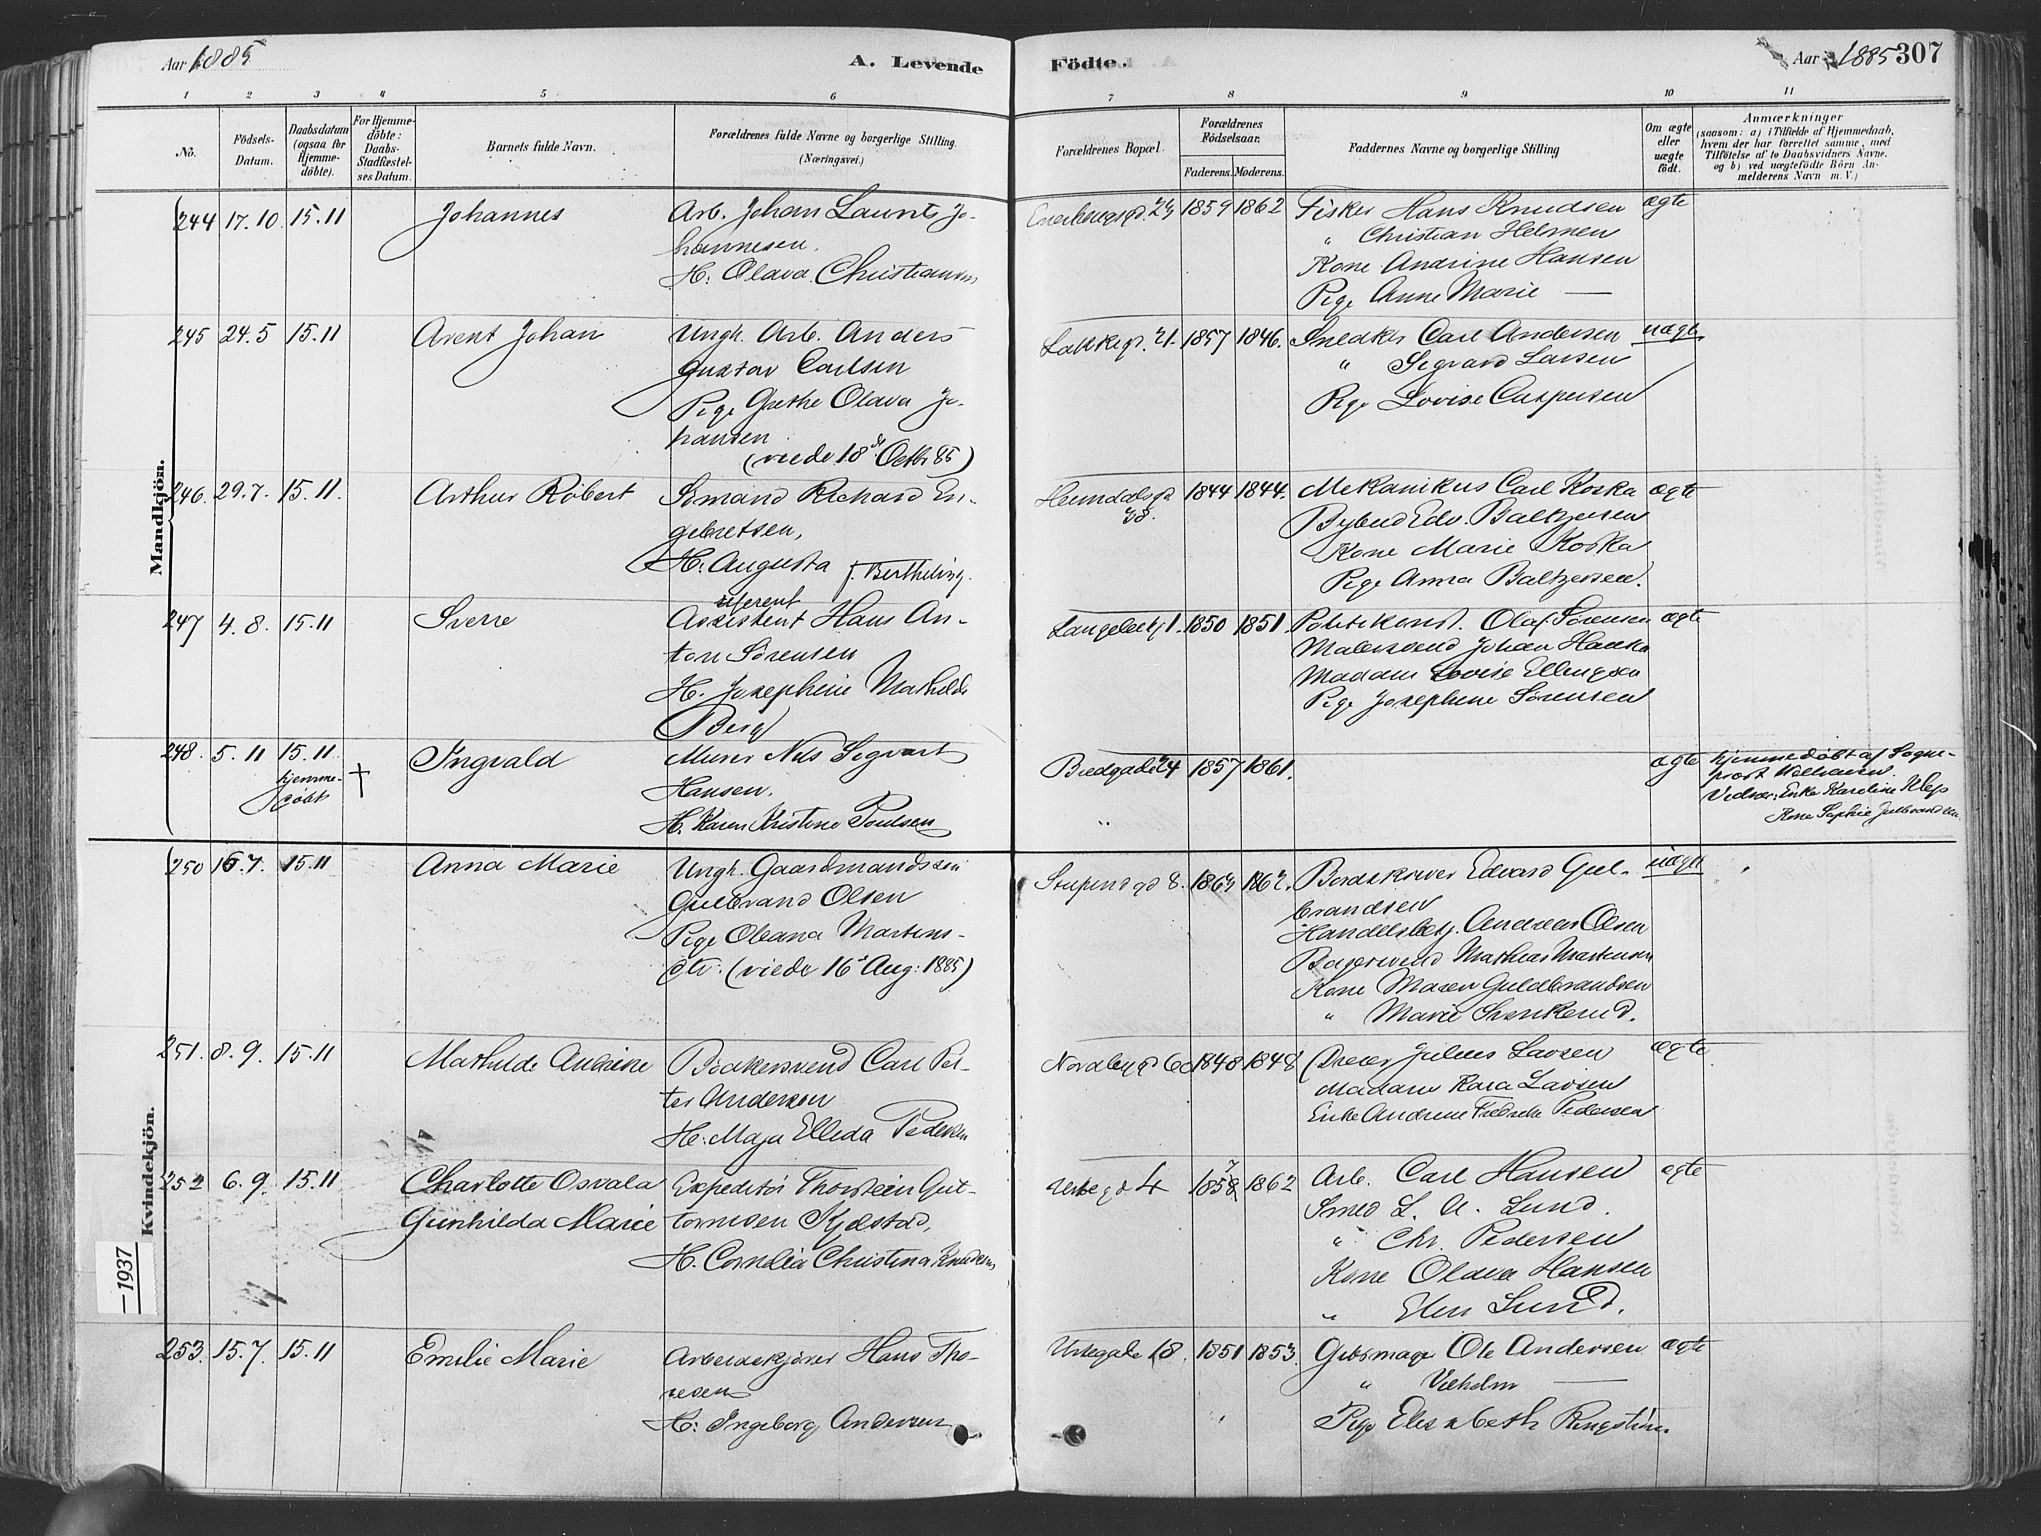 Aar 1885
A. Levende
Födte.
Aar 1885
307
1
2
3
4
5
6
7
8
9
10
11
No.
Födsels-
Datum.
Daabsdatum
(ogsaa for
Hjemme-
döbte).
For Hjemme-
döbte:
Daabs-
Stadfæstel-
ses Datum.
Barnets fulde Navn.
Forældrenes fulde Navne og borgerlige Stilling.
(Næringsvei.)
Forældrenes Bopæl.
Forældrenes
Födselsaar.
Faderens.
Moderens.
Faddernes Navne og borgerlige Stilling
Om ægte
eller
uægte
födt.
Anmærkninger
(saasom: a) i Tilfælde af Hjemmedaab,
hvem der har forrettet samme, med
Tilföielse af to Daabsvidners Navne.
og b) ved uægtefödte Börn An-
melderens Navn m. V.)
Mandkjön.
244 17.10. 15.11
Johannes
Arb. Johan Laurits Jo-
hannesen.
H. Olava Christiansen
1859 1862
Fisker Hans Knudsen
" Christian Helmen
Kone Andrine Hansen
Pige Anne Marie —
ægte
245 24.5 15.11
Arent Johan
Ungk. Arb. Anders
Gustav Carlsen
Pige Grethe Olava Jo-
hansen
(viede 18de Octbr 85)
Lakkegd. 21. 1857 1846.
Snedker Carl Andersen
" Sigvard Larsen
Pige Lovise Caspersen
uægte
246. 29.7. 15.11.
Arthur Robert
Sömand Richard En-
gebretsen,
H. Augusta f. Berthling.
Heimdalsgd
38.
1844 1844.
Mekanikus Carl Koska
Bybud Edv. Baltzersen
Kone Marie Koska
Pige Anna Baltzersen.
ægte
247 4.8. 15.11
Sverre
referent
Assistent Hans An-
ton Sörensen
H. Josephine Mathilde
Berg
1850 1851.
Politikonst. Olaf Sörensen
Malersvend Johan Hanka
Madam Lovise Ellingsen
Pige Josephine Sörensen
ægte
248. 5.11 15.11
hjemme-
döbt
†
Ingvald
Murer Nils Sigvart
Hansen.
H. Karen Kristine Poulsen
Bredgade 24 1857 1861.
"
ægte
hjemmedöbt af Sogne-
præst Welhaven.
Vidner: Enke Karoline Klep
Kone Sophie Gulbrandsen.
Kvindekjön.
250 16.7. 15.11
Anna Marie
Ungk. Gaardmandssön
Gulbrand Olsen
Pige Oleana Martins-
dtr. (viede 16de Aug: 1885)
Stupendgd 8. 1863 1862.
Bordskriver Edvard Gul-
brandsen
Handelsbetj. Andreas Olsen
Bagersvend Mathias Martinsen
Kone Maren Guldbrandsen
uægte
251. 8.9. 15.11
Mathilde Andrine
Bödkersvend Carl Pet-
ter Andersen
H. Maja Elleda Pedersen
1848 1848
Dreier Julius Larsen
Madam Kara Larsen
Enke Andrine Fredrikke Pedersen
ægte
252 6.9. 15.11
Charlotte Osvala
Gunhilda Marie
Expeditör Thorstein Gut-
tormsen Kjelstad,
H. Cornelia Christina Knudsen
Urtegd 4 1858 7 1862
Arb. Carl Hansen
Smed L. A. Lund.
" Chr. Pedersen
Kone Olava Hansen
" Elen Lund.
ægte
—1937
253. 15.7. 15.11
Emilie Marie
Arbeidskjörer Hans Tho-
resen
H. Ingeborg Andersen
Urtegade 18. 1851 1853.
Gibsmager Ole Andersen
" Vilhelm —
Pige Elisabeth Ringström
ægte